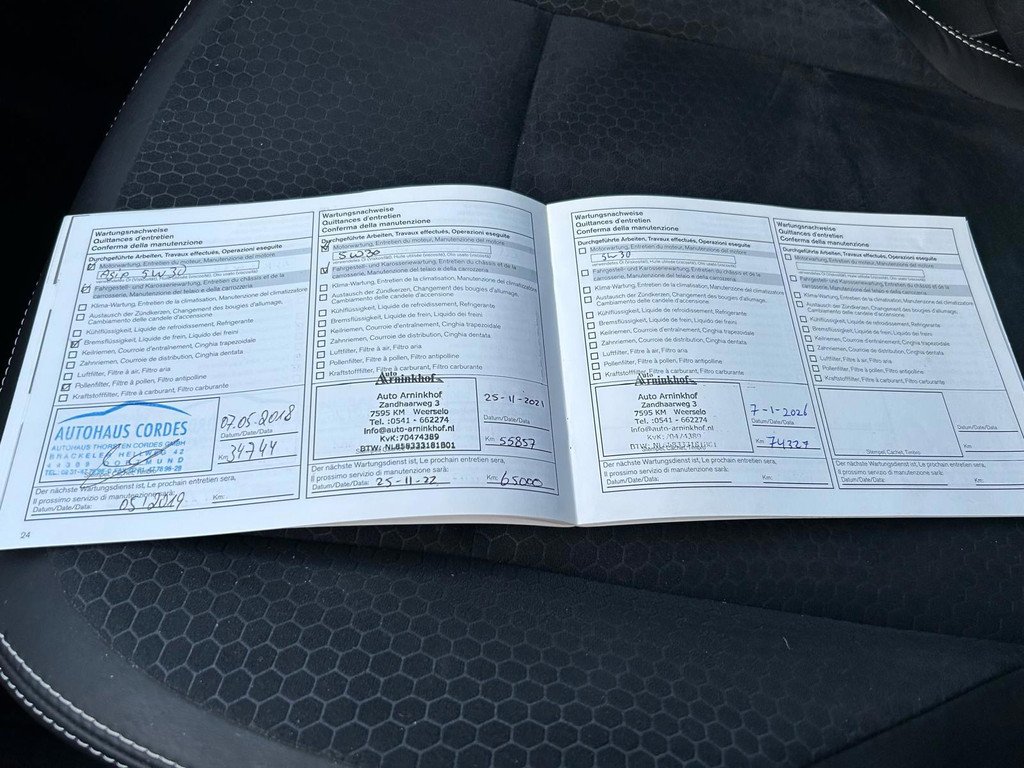 Wartungsnachweise
Quittances d'entretien
Conferma della manutenzione
Durchgeführte Arbeiten, Travaux effectués, Operazioni eseguite
Motorwartung, Entretien du moteur, Manutenzione del motore
5W30
Fahrgestell- und Karosseriewartung, Entretien du châssis et de la
carrosserie, Manutenzione del telaio e della carrozzeria
Klima-Wartung, Entretien de la climatisation, Manutenzione del climatizzatore
Austausch der Zündkerzen, Changement des bougies d'allumage,
Cambiamento delle candele d'accensione
Kühlflüssigkeit, Liquide de refroidissement, Refrigerante
Bremsflüssigkeit, Liquide de frein, Liquido dei freini
Keilriemen, Courroie d'entraînement, Cinghia trapezoidale
Zahnriemen, Courroie de distribution, Cinghia dentata
Luftfilter, Filtre à air, Filtro aria
Pollenfilter, Filtre à pollen, Filtro antipolline
Kraftstofffilter, Filtre à carburant, Filtro carburante
AUTOHAUS CORDES
AUTOHAUS THORSTEN CORDES GMBH
BRACKELER HELLWEG 42
07.05.2018
Datum/Date/Data:
Km 34744
Der nächste Wartungsdienst ist, Le prochain entretien sera,
Il prossimo servizio di manutenzione sarà:
Datum/Date/Data: 05/2019 Km:
24
Wartungsnachweise
Quittances d'entretien
Conferma della manutenzione
Durchgeführte Arbeiten, Travaux effectués, Operazioni eseguite
Motorwartung, Entretien du moteur, Manutenzione del motore
5W30
Fahrgestell- und Karosseriewartung, Entretien du châssis et de la
carrosserie, Manutenzione del telaio e della carrozzeria
Klima-Wartung, Entretien de la climatisation, Manutenzione del climatizzatore
Austausch der Zündkerzen, Changement des bougies d'allumage,
Cambiamento delle candele d'accensione
Kühlflüssigkeit, Liquide de refroidissement, Refrigerante
Bremsflüssigkeit, Liquide de frein, Liquido dei freini
Keilriemen, Courroie d'entraînement, Cinghia trapezoidale
Zahnriemen, Courroie de distribution, Cinghia dentata
Luftfilter, Filtre à air, Filtro aria
Pollenfilter, Filtre à pollen, Filtro antipolline
Kraftstofffilter, Filtre à carburant, Filtro carburante
Auto
Arninkhof
Auto Arninkhof
Zandhaarweg 3
7595 KM Weerselo
Tel.:0541 - 662274
Info@auto-arninkhof.nl
KvK:70474389
BTW: NL858333181B01
25-11-2021
Datum/Date/Data:
Km: 55857
Der nächste Wartungsdienst ist, Le prochain entretien sera,
Il prossimo servizio di manutenzione sarà:
Datum/Date/Data: 25-11-22 Km: 65000
Wartungsnachweise
Quittances d'entretien
Conferma della manutenzione
Durchgeführte Arbeiten, Travaux effectués, Operazioni eseguite
Motorwartung, Entretien du moteur, Manutenzione del motore
5W30
Fahrgestell- und Karosseriewartung, Entretien du châssis et de la
carrosserie, Manutenzione del telaio e della carrozzeria
Klima-Wartung, Entretien de la climatisation, Manutenzione del climatizzatore
Austausch der Zündkerzen, Changement des bougies d'allumage,
Cambiamento delle candele d'accensione
Kühlflüssigkeit, Liquide de refroidissement, Refrigerante
Bremsflüssigkeit, Liquide de frein, Liquido dei freini
Keilriemen, Courroie d'entraînement, Cinghia trapezoidale
Zahnriemen, Courroie de distribution, Cinghia dentata
Luftfilter, Filtre à air, Filtro aria
Pollenfilter, Filtre à pollen, Filtro antipolline
Kraftstofffilter, Filtre à carburant, Filtro carburante
Auto
Arninkhof
Auto Arninkhof
Zandhaarweg 3
7595 KM Weerselo
Tel.:0541 - 662274
Info@auto-arninkhof.nl
KvK:70474389
7-1-2026
Datum/Date/Data:
Km:
Der nächste Wartungsdienst ist, Le prochain entretien sera,
Il prossimo servizio di manutenzione sarà:
Datum/Date/Data: Km:
Wartungsnachweise
Quittances d'entretien
Conferma della manutenzione
Durchgeführte Arbeiten, Travaux effectués, Operazioni eseguite
Motorwartung, Entretien du moteur, Manutenzione del motore
Fahrgestell- und Karosseriewartung, Entretien du châssis et de la
carrosserie, Manutenzione del telaio e della carrozzeria
Klima-Wartung, Entretien de la climatisation, Manutenzione del
Austausch der Zündkerzen, Changement des bougies d'allumage,
Cambiamento delle candele d'accensione
Kühlflüssigkeit, Liquide de refroidissement, Refrigerante
Bremsflüssigkeit, Liquide de frein, Liquido dei freini
Keilriemen, Courroie d'entraînement, Cinghia trapezoidale
Zahnriemen, Courroie de distribution, Cinghia dentata
Luftfilter, Filtre à air, Filtro aria
Pollenfilter, Filtre à pollen, Filtro antipolline
Kraftstofffilter, Filtre à carburant, Filtro carburante
Stempel, Cachet, Timbro
Datum/Date/Data:
Km:
Der nächste Wartungsdienst ist, Le prochain entretien sera,
Il prossimo servizio di manutenzione sarà:
Datum/Date/Data: Km: